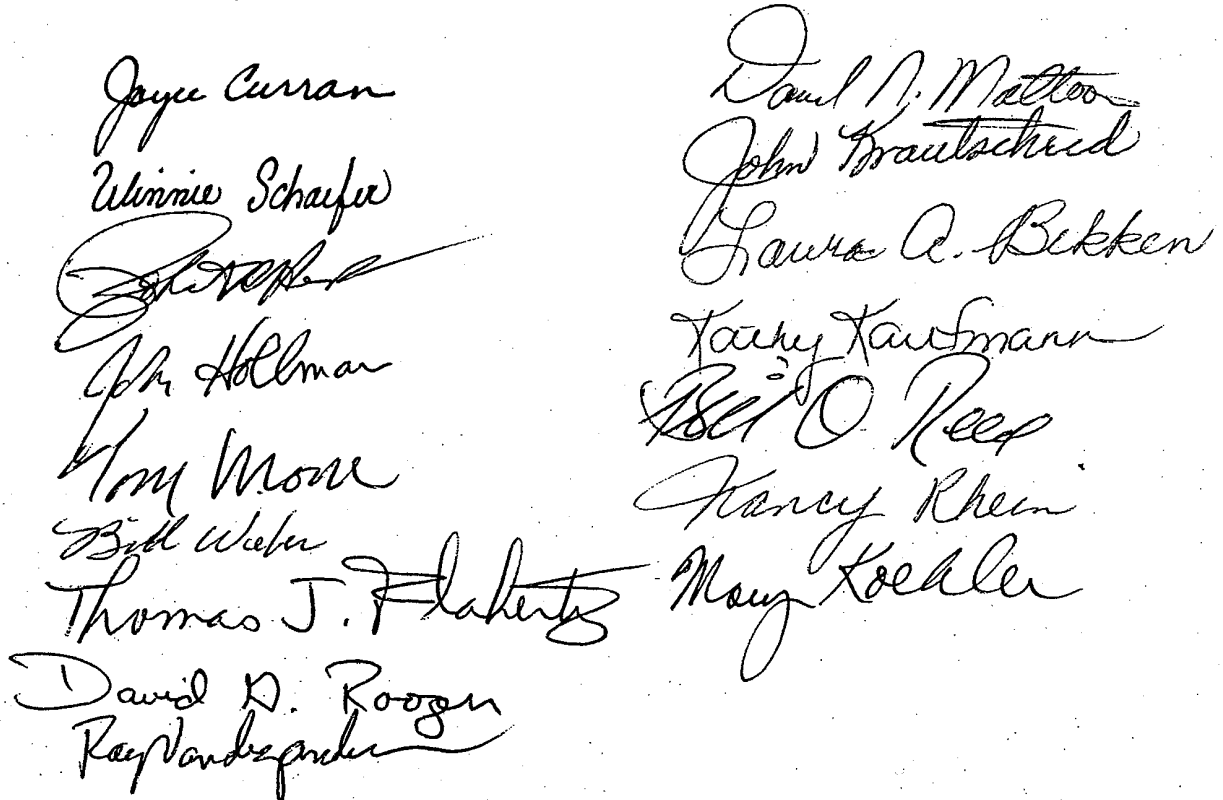 Joyce Curran
Winnie Schaefer
John
John Hollman
Tom
Bill Weber
Thomas J. Flaherty
David D. Roozen
Ray
David N. Mattoon
John Krautscheid
Laura A. Bekken
Kathy Kaufmann
Bill O. Reed
Nancy Rhein
Mary Koehler